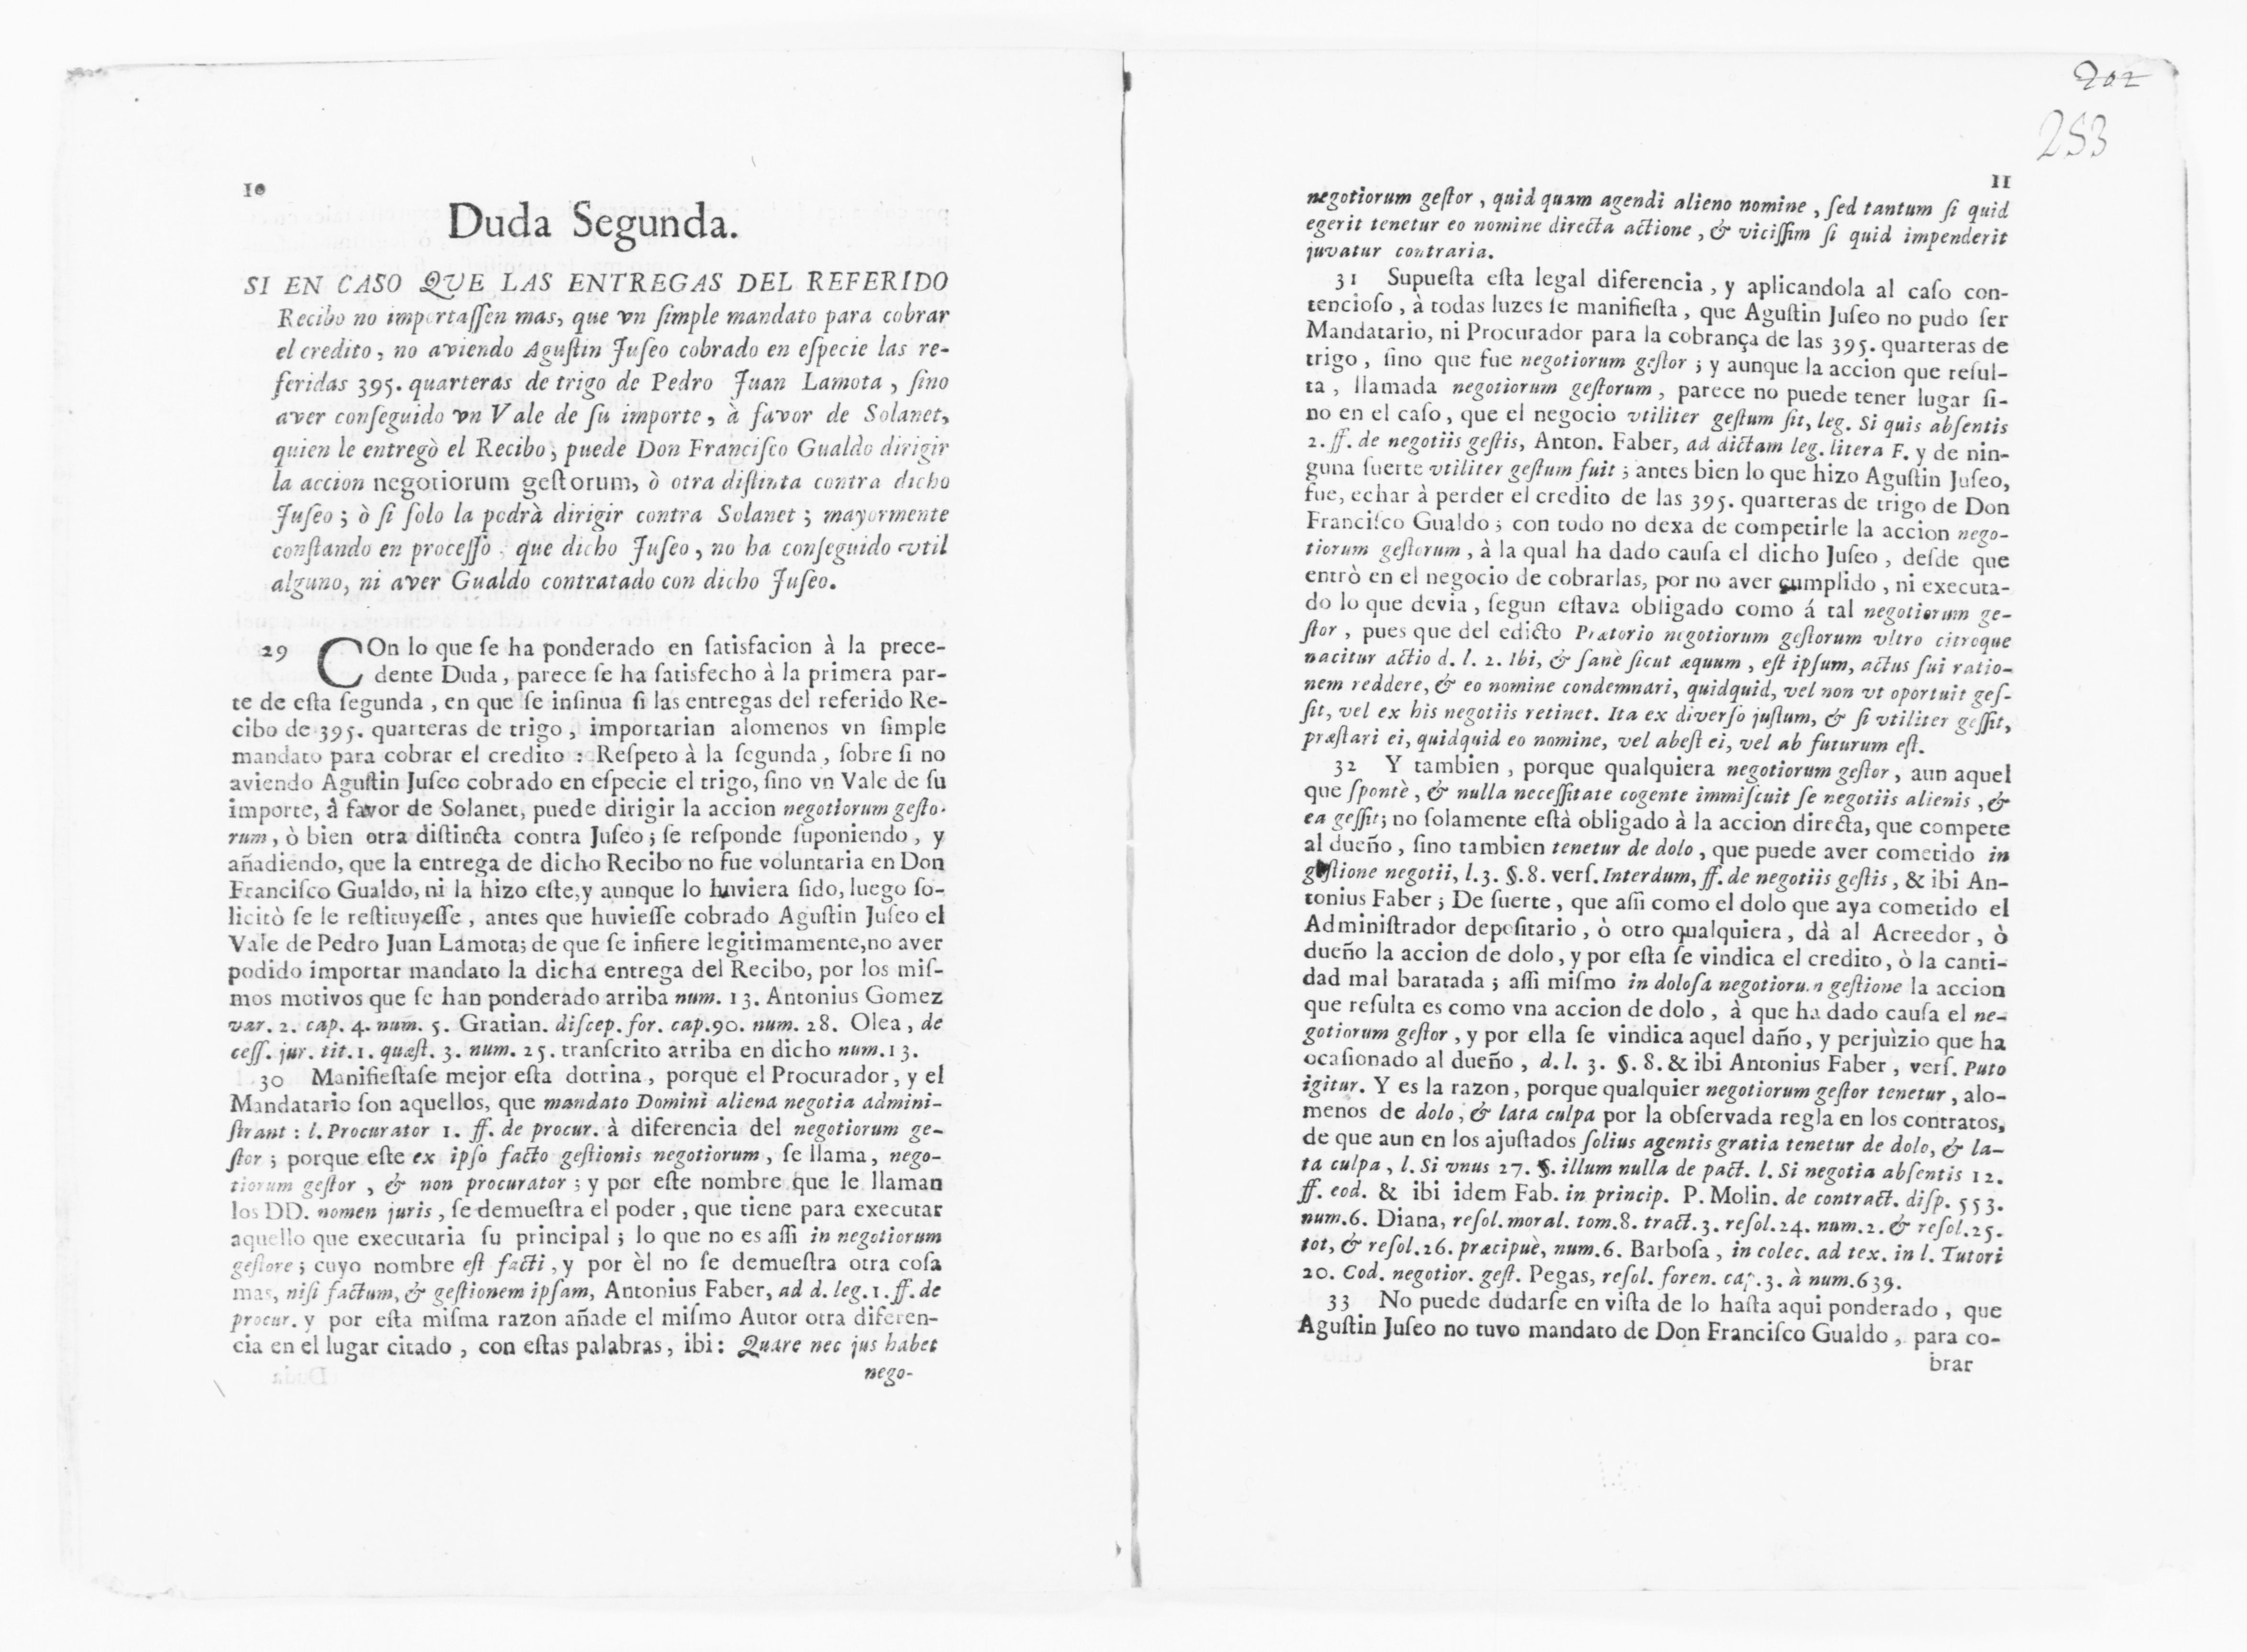 10
Duda Segunda.
SI EN CASO QVE LAS ENTREGAS DEL REFERIDO
Recibo no importaſſen mas, que vn ſimple mandato para cobrar
el credito, no aviendo Aguſtin Juſeo cobrado en eſpecie las re-
feridas 395. quarteras de trigo de Pedro Juan Lamota, ſino
aver conſeguido vn Vale de ſu importe, à favor de Solanet,
quien le entregò el Recibo; puede Don Franciſco Gualdo dirigir
la accion negotiorum geſtorum, ò otra diſtinta contra dicho
Juſeo; ò ſi ſolo la podrà dirigir contra Solanet; mayormente
conſtando en proceſſo, que dicho Juſeo, no ha conſeguido vtil
alguno, ni aver Gualdo contratado con dicho Juſeo.
29 COn lo que ſe ha ponderado en ſatisfacion à la prece-
dente Duda, parece ſe ha ſatisfecho à la primera par-
te de eſta ſegunda, en que ſe inſinua ſi las entregas del referido Re-
cibo de 395. quarteras de trigo, importarian alomenos vn ſimple
mandato para cobrar el credito: Reſpeto à la ſegunda, ſobre ſi no
aviendo Aguſtin Juſeo cobrado en eſpecie el trigo, ſino vn Vale de ſu
importe, à favor de Solanet, puede dirigir la accion negotiorum geſto-
rum, ò bien otra diſtincta contra Juſeo; ſe reſponde ſuponiendo, y
añadiendo, que la entrega de dicho Recibo no fue voluntaria en Don
Franciſco Gualdo, ni la hizo eſte, y aunque lo huviera ſido, luego ſo-
licitò ſe le reſtituyæſſe, antes que huvieſſe cobrado Aguſtin Juſeo el
Vale de Pedro Juan Lamota; de que ſe infiere legitimamente, no aver
podido importar mandato la dicha entrega del Recibo, por los miſ-
mos motivos que ſe han ponderado arriba num. 13. Antonius Gomez
var. 2. cap. 4. num. 5. Gratian. diſcep. for. cap. 90. num. 28. Olea, de
ceſſ. jur. tit. 1. quæſt. 3. num. 25. tranſcrito arriba en dicho num. 13.
30 Manifieſtaſe mejor eſta dotrina, porque el Procurador, y el
Mandatario ſon aquellos, que mandato Domini aliena negotia admini-
ſtrant: l. Procurator 1. ff. de procur. à diferencia del negotiorum ge-
ſtor; porque eſte ex ipſo facto geſtionis negotiorum, ſe llama, nego-
tiorum geſtor, & non procurator; y por eſte nombre que le llaman
los DD. nomen juris, ſe demueſtra el poder, que tiene para executar
aquello que executaria ſu principal; lo que no es aſſi in negotiorum
geſtore; cuyo nombre eſt facti, y por èl no ſe demueſtra otra coſa
mas, niſi factum, & geſtionem ipſam, Antonius Faber, ad d. leg. 1. ff. de
procur. y por eſta miſma razon añade el miſmo Autor otra diferen-
cia en el lugar citado, con eſtas palabras, ibi: Quare nec jus habet
nego-
202
253
11
negotiorum geſtor, quid quam agendi alieno nomine, ſed tantum ſi quid
egerit tenetur eo nomine directa actione, & viciſſim ſi quid impenderit
juvatur contraria.
31 Supueſta eſta legal diferencia, y aplicandola al caſo con-
tencioſo, à todas luzes ſe manifieſta, que Aguſtin Juſeo no pudo ſer
Mandatario, ni Procurador para la cobrança de las 395. quarteras de
trigo, ſino que fue negotiorum geſtor; y aunque la accion que reſul-
ta, llamada negotiorum geſtorum, parece no puede tener lugar ſi-
no en el caſo, que el negocio vtiliter geſtum ſit, leg. Si quis abſentis
2. ff. de negotiis geſtis, Anton. Faber, ad dictam leg. litera F. y de nin-
guna ſuerte vtiliter geſtum fuit; antes bien lo que hizo Aguſtin Juſeo,
fue, echar à perder el credito de las 395. quarteras de trigo de Don
Franciſco Gualdo; con todo no dexa de competirle la accion nego-
tiorum geſtorum, à la qual ha dado cauſa el dicho Juſeo, deſde que
entrò en el negocio de cobrarlas, por no aver cumplido, ni executa-
do lo que devia, ſegun eſtava obligado como á tal negotiorum ge-
ſtor, pues que del edicto Prætorio negotiorum geſtorum vltro citroque
nacitur actio d. l. 2. Ibi, & ſanè ſicut æquum, eſt ipſum, actus ſui ratio-
nem reddere, & eo nomine condemnari, quidquid, vel non vt oportuit geſ-
ſit, vel ex his negotiis retinet. Ita ex diverſo juſtum, & ſi vtiliter geſſit,
præſtari ei, quidquid eo nomine, vel abeſt ei, vel ab futurum eſt.
32 Y tambien, porque qualquiera negotiorum geſtor, aun aquel
que ſpontè, & nulla neceſſitate cogente immiſcuit ſe negotiis alienis, &
ea geſſit; no ſolamente eſtà obligado à la accion directa, que compete
al dueño, ſino tambien tenetur de dolo, que puede aver cometido in
geſtione negotii, l. 3. §. 8. verſ. Interdum, ff. de negotiis geſtis, & ibi An-
tonius Faber; De ſuerte, que aſſi como el dolo que aya cometido el
Adminiſtrador depoſitario, ò otro qualquiera, dà al Acreedor, ò
dueño la accion de dolo, y por eſta ſe vindica el credito, ò la canti-
dad mal baratada; aſſi miſmo in doloſa negotiorum geſtione la accion
que reſulta es como vna accion de dolo, à que ha dado cauſa el ne-
gotiorum geſtor, y por ella ſe vindica aquel daño, y perjuìzio que ha
ocaſionado al dueño, d. l. 3. §. 8. & ibi Antonius Faber, verſ. Puto
igitur. Y es la razon, porque qualquier negotiorum geſtor tenetur, alo-
menos de dolo, & lata culpa por la obſervada regla en los contratos,
de que aun en los ajuſtados ſolius agentis gratia tenetur de dolo, & la-
ta culpa, l. Si vnus 27. §. illum nulla de pact. l. Si negotia abſentis 12.
ff. eod. & ibi idem Fab. in princip. P. Molin. de contract. diſp. 553.
num. 6. Diana, reſol. moral. tom. 8. tract. 3. reſol. 24. num. 2. & reſol. 25.
tot, & reſol. 26. præcipuè, num. 6. Barboſa, in colec. ad tex. in l. Tutori
20. Cod. negotior. geſt. Pegas, reſol. foren. cap. 3. à num. 639.
33 No puede dudarſe en viſta de lo haſta aqui ponderado, que
Aguſtin Juſeo no tuvo mandato de Don Franciſco Gualdo, para co-
brar